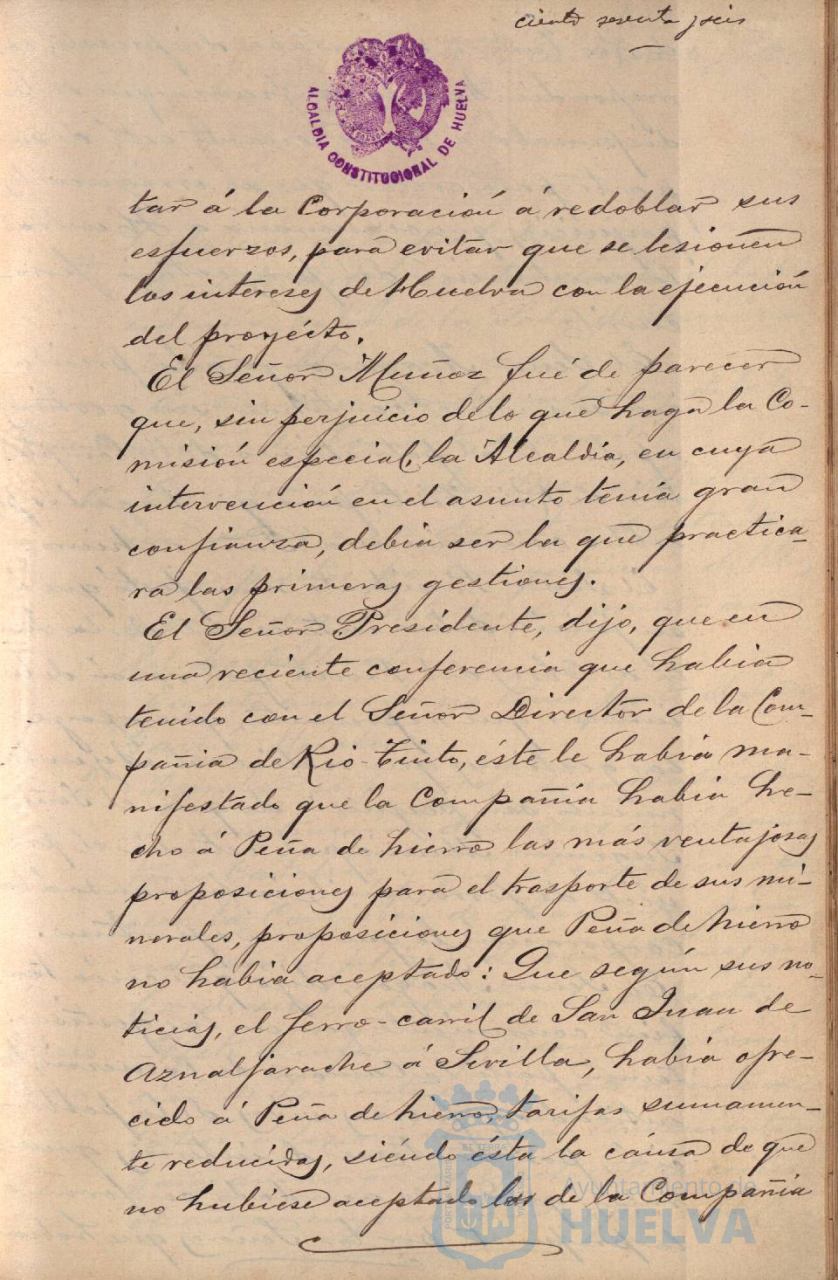 ciento sesenta y seis
ALCALDIA CONSTITUCIONAL DE HUELVA
tar á la Corporación á redoblar sus
esfuerzos, para evitar que se lesionen
los intereses de Huelva con la ejecución
del proyécto.
El Señor Muñoz fué de parecer
que, sin perjuicio de lo que haga la Co-
misión especial, la Alcaldía, en cuya
intervención en el asunto tenía gran
confianza, debia ser la que practica-
ra las primeras gestiones.
El Señor Presidente, dijo, que en
una reciente conferencia que habia
tenido con el Señor Director de la Com-
pañia de Rio-Tinto, éste le habia ma-
nifestado que la Compañía habia he-
cho á Peña de hierro las más ventajosas
proposiciones para el trasporte de sus mi-
nerales, proposiciones que Peña de hierro
no habia aceptado: Que según sus no-
ticias, el ferro-carril de San Juan de
Aznalfarache á Sevilla, habia ofre-
cido á Peña de hierro, tarifas sumamen-
te reducidas, siéndo ésta la cáusa de que
no hubiese aceptado las de la Compañia
Ayuntamiento de
HUELVA